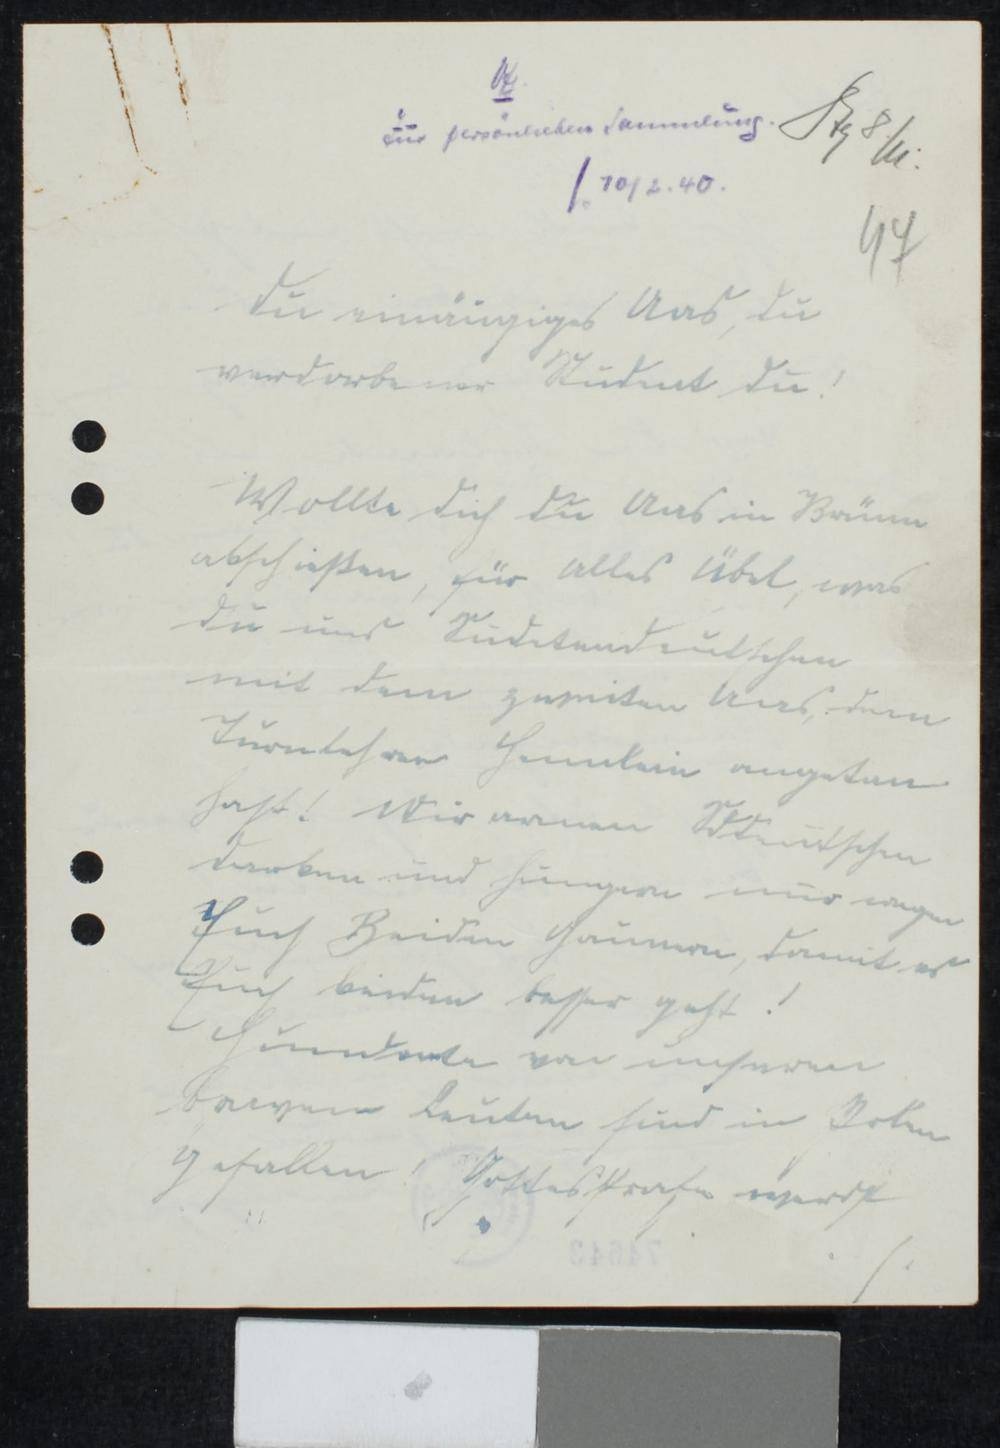 zur persönlichen Sammlung.
10/2.40.
47
Du einäugiges Aas, du
verdorbener Student du!
Wollte dich du Aas in Brünn
abschießen, für alles Übel, was
du uns Sudetendeutschen
mit dem zweiten Aas, dem
Turnlehrer Henlein angetan
hast! Wir armen Sdeutschen
darben und hungern nur wegen
Euch Beiden Gaunern, damit es
Euch beiden besser geht!
Hunderte von unseren
braven Leuten sind in Polen
gefallen! Gottesstrafe
74643